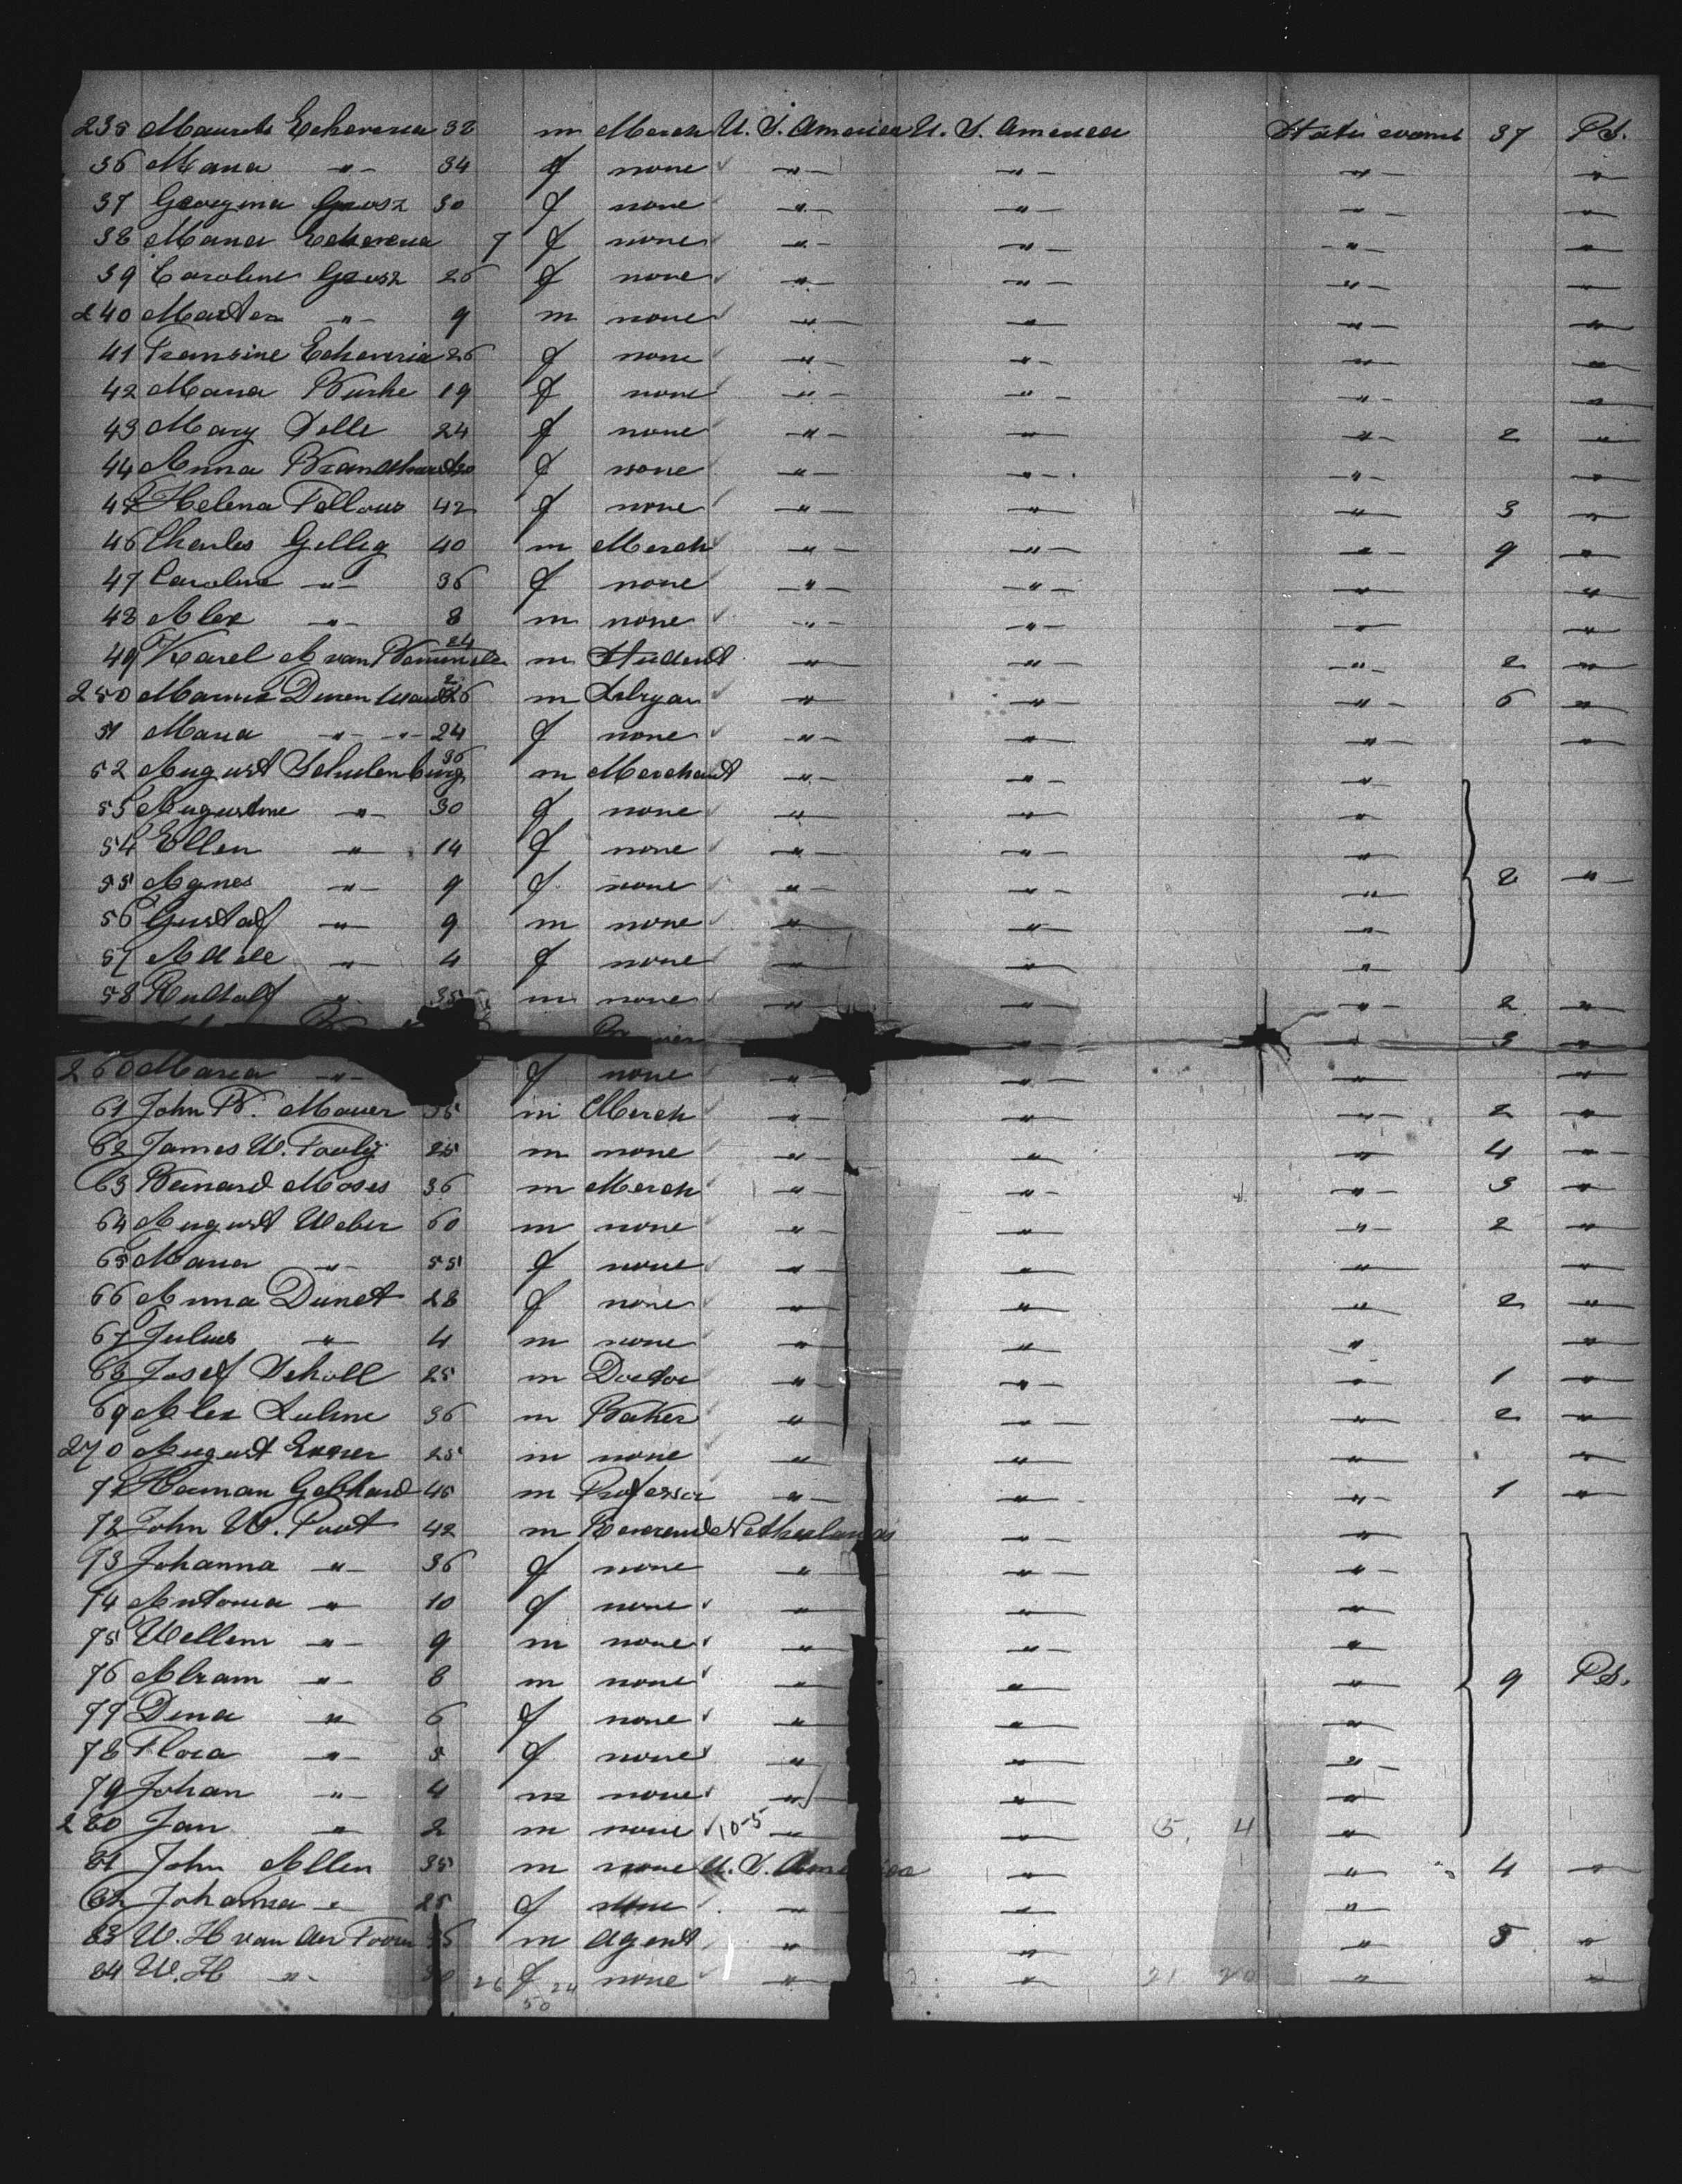 235 Maurits Echeveria 32 m Merch U. S. America U. S. America State rooms 37 PS.
36 Maria " 34 f none " " " "
37 Georgina 30 f none " " " "
38 Maria Echeveria 7 f none " " " "
39 Caroline 26 f none " " " "
240 " 9 m none " " " "
41 Fransine Echeveria 26 f none " " " "
42 Maria Burke 19 f none " " " "
43 Mary Selle 24 f none " " " 2 "
44 Anna f none " " " "
45 Helena Fellows 42 f none " " " 3 "
46 Charles Gillig 40 m Merch " " " 9 "
47 Caroline " 36 f none " " " "
48 Alex " 8 m none " " " "
49 Karel A van 24 m Student " " " 2 "
250 26 m " " " 6 "
51 Maria " " 24 f none " " " "
52 August Schulenburg 36 m Merchant " " "
53 Augustine " 30 f none " " "
54 Ellen " 14 f none " " "
55 Agnes " 9 f none " " " 2 "
56 Gustaf " 9 m none " " "
57 " 4 f none " " "
58 Rudolf " 35 m none " " " 2 "
" " 3 "
260 Maria " f none " " " "
61 John B. Mauer 35 m Merch " " " 2 "
62 James W. 25 m none " " " 4 "
63 Bernard Moses 36 m Merch " " " 3 "
64 August Weber 60 m none " " " 2 "
65 Maria " 55 f none " " " "
66 Anna 28 f none " " " 2 "
67 Julius " 4 m none " " " "
68 Josef Scholl 25 m Doctor " " " 1 "
69 Alex 36 m Baker " " " 2 "
270 August 25 m none " " " "
71 Herman Gebhard 45 m Professor " " " 1 "
72 John W. Poot 42 m Reverend Netherlands " "
73 Johanna " 36 f none " " "
74 Antonia " 10 f none " " "
75 Willem " 9 m none " " "
76 Abram " 8 m none " " " 9 PS.
77 Dina " 6 f none " " "
78 Flora " 5 f none " " "
79 Johan " 4 m none " " "
280 Jan " 2 m none 10-5 " " 5. 4 "
81 John Allen 35 m none U. S. America " " 4 "
82 Johanna " 25 f none " " "
83 W. H van der 35 m Agent " " " 5 "
84 W. H " 30 26 f 24 none " " 21 20 " "
50